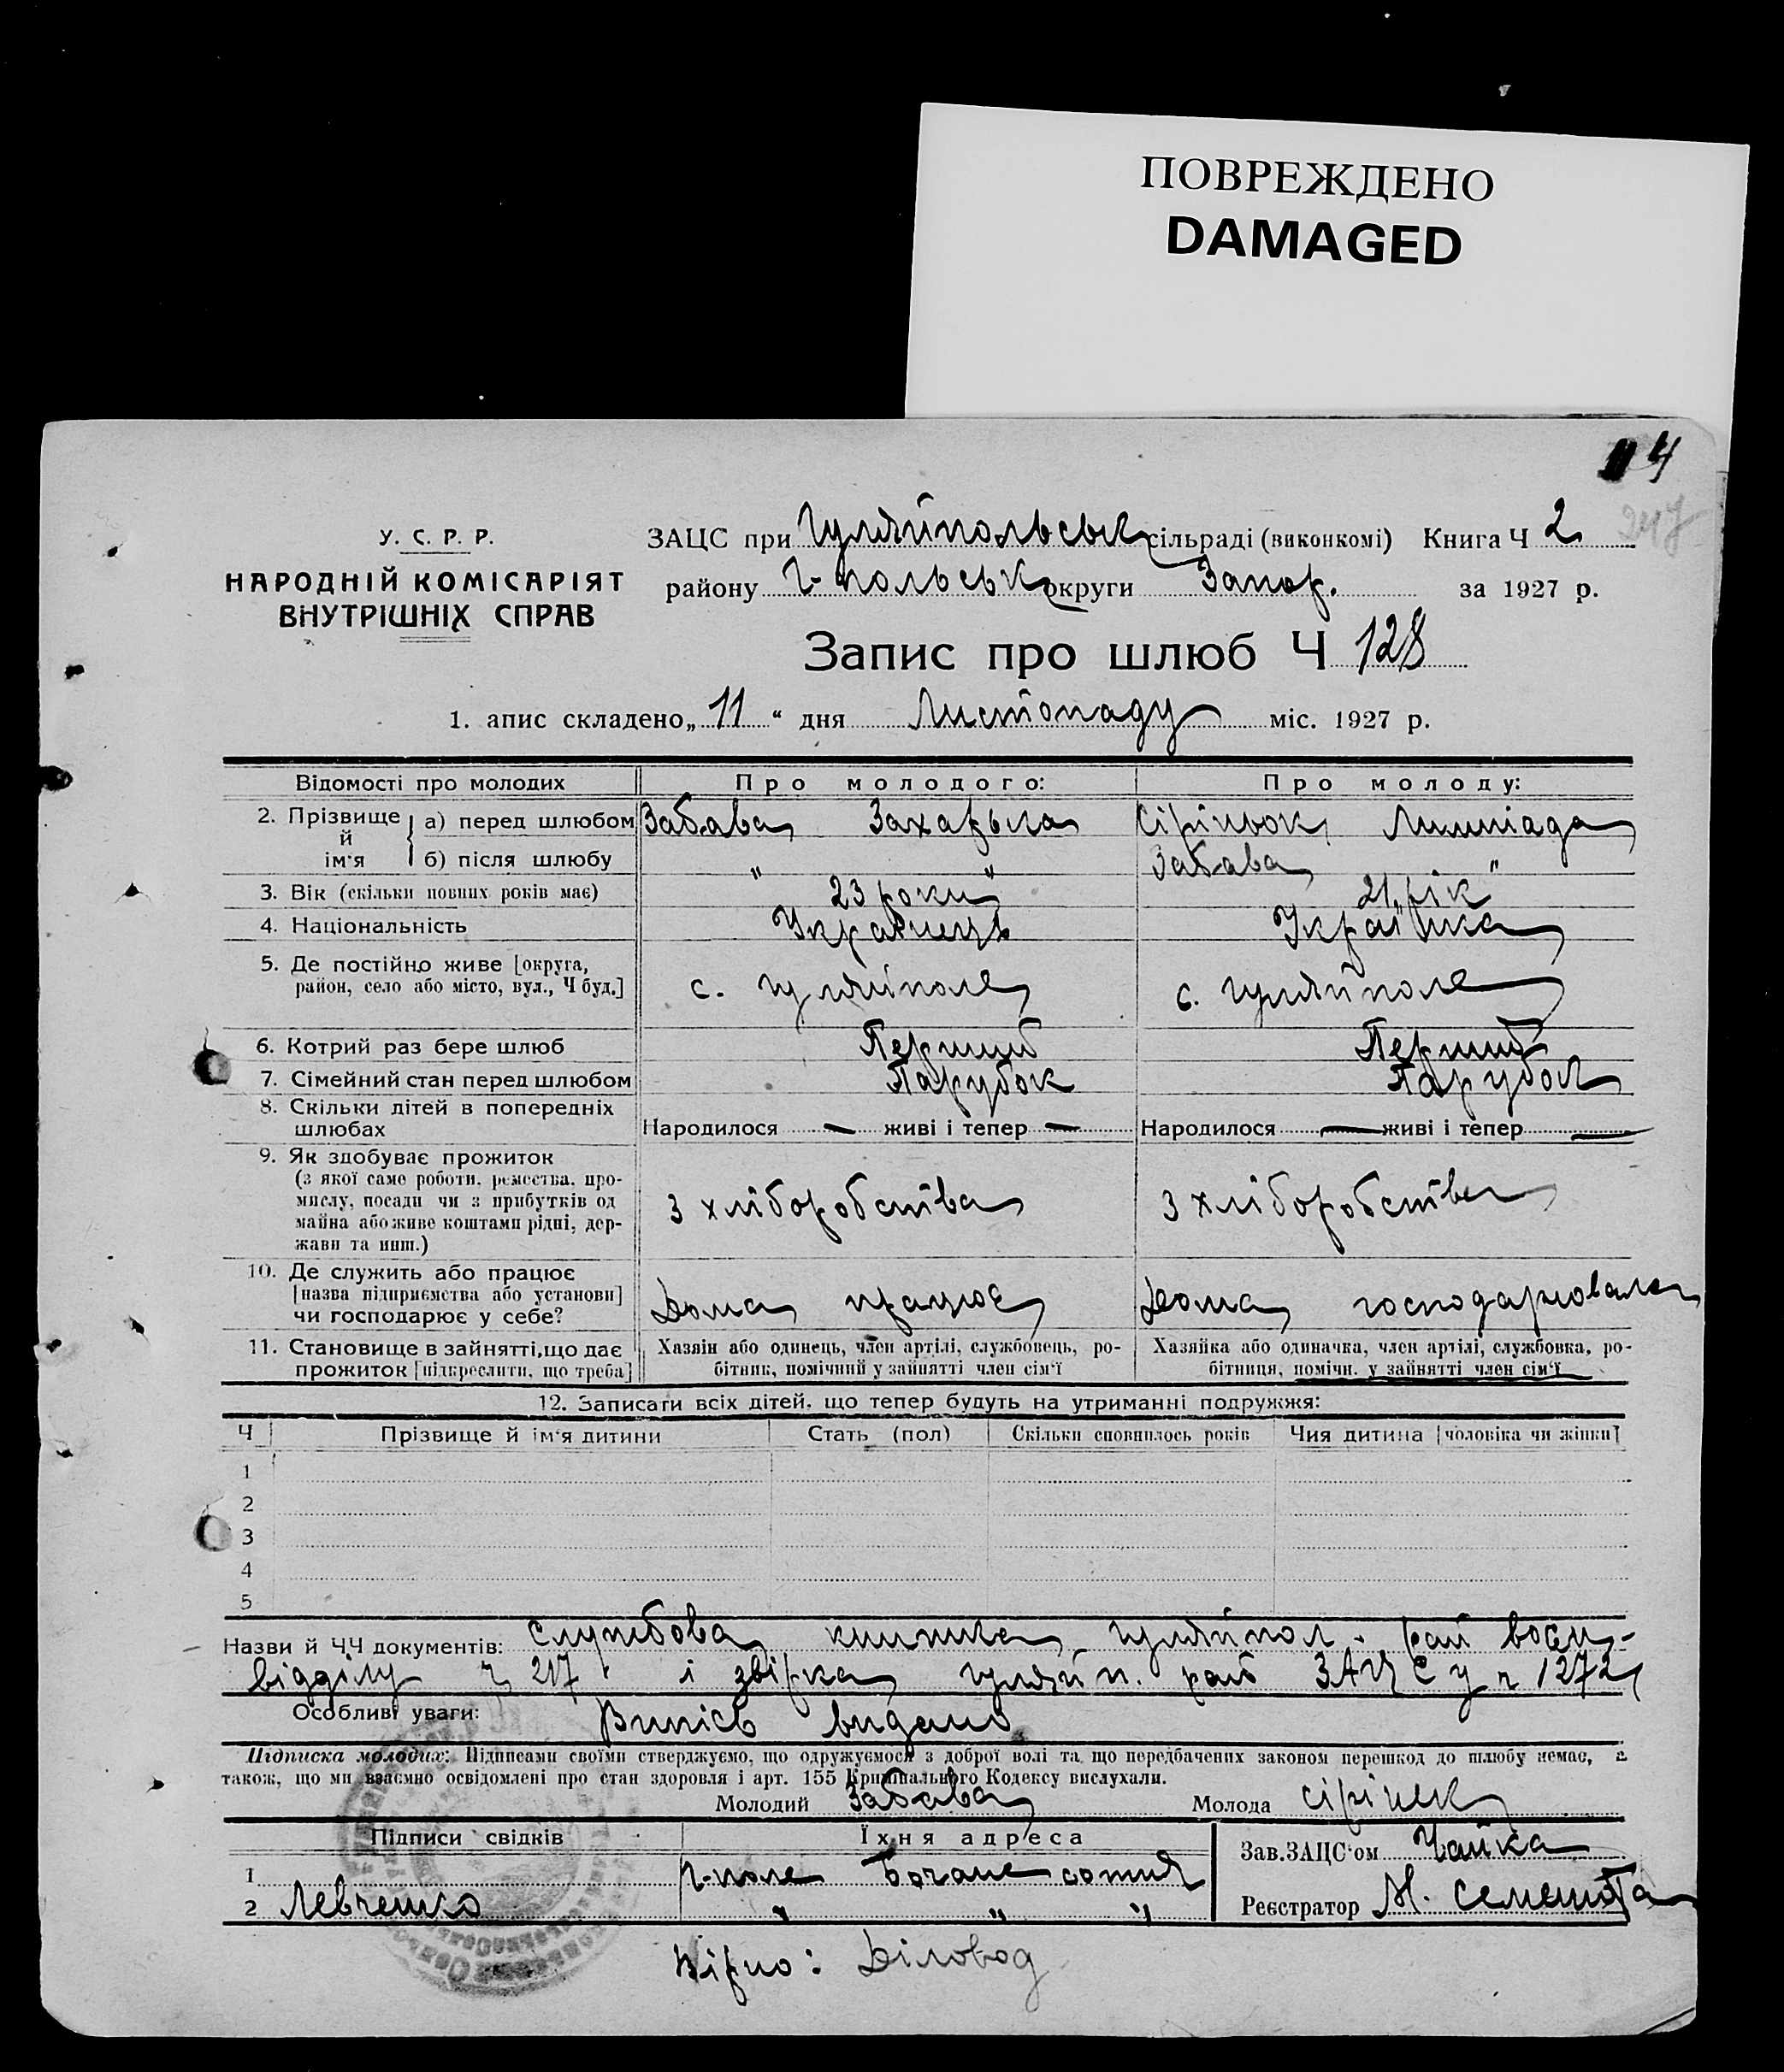 ПОВРЕЖДЕНО
DAMAGED
4
247
У. С. Р. Р.
НАРОДНІЙ КОМІСАРІЯТ
ВНУТРІШНІХ СПРАВ
ЗАЦС при Гуляйпольськ сільраді (виконкомі) Книга Ч 2
району Г-польськ округи Запор. за 1927 р.
Запис про шлюб Ч 128
1. апис складено „ 11 “ дня Листопаду міс. 1927 р.
Відомості про молодих Про молодого: Про молоду:
2. Прізвище й ім'я а) перед шлюбом Забава Захарька Сіріньок Лимпіада
б) після шлюбу " " Забава "
3. Вік (скільки повних років має) 23 роки 21 рік
4. Національність Українець Українка
5. Де постійно живе [округа, район, село або місто, вул., Ч буд.] с. Гуляйполе с. Гуляйполе
6. Котрий раз бере шлюб Перший Перший
7. Сімейний стан перед шлюбом Парубок Парубок
8. Скільки дітей в попередніх шлюбах Народилося — живі і тепер — Народилося — живі і тепер —
9. Як здобуває прожиток
(з якої саме роботи, ремества, про-
мислу, посади чи з прибутків од
майна або живе коштами рідні, дер-
жави та инш.) з хліборобства з хліборобства
10. Де служить або працює
[назва підприємства або установи]
чи господарює у себе? Дома працює Дома господарювала
11. Становище в зайнятті, що дає Хазяїн або одинець, член артілі, службовець, ро- Хазяйка або одиначка, член артілі, службовка, ро-
прожиток [підкреслити, що треба] бітник, помічний у зайнятті член сім'ї бітниця, помічн. у зайнятті член сім'ї
12. Записати всіх дітей, що тепер будуть на утриманні подружжя:
Ч Прізвище й ім'я дитини Стать (пол) Скільки сповнилось років Чия дитина [чоловіка чи жінки]
1
2
3
4
5
Назви й ЧЧ документів: Службова книжка Гуляйпол. рай воєн-
відділу ч 217 і звірка Гуляйп. рай ЗАЦСу ч 1272
Особливі уваги: Випісь видано
Підписка молодих: Підписами своїми стверджуємо, що одружуємося з доброї волі та що передбачених законом перешкод до шлюбу немає, а
також, що ми взаємно освідомлені про стан здоровля і арт. 155 Кримінального Кодексу вислухали.
Молодий Забава Молода Сірінек
Підписи свідків Їхня адреса Зав.ЗАЦС'ом Чайка
1 Г-поле Бочане сотня
2 Левченко " " " Реєстратор М. Семенота
Вірно: Діловод